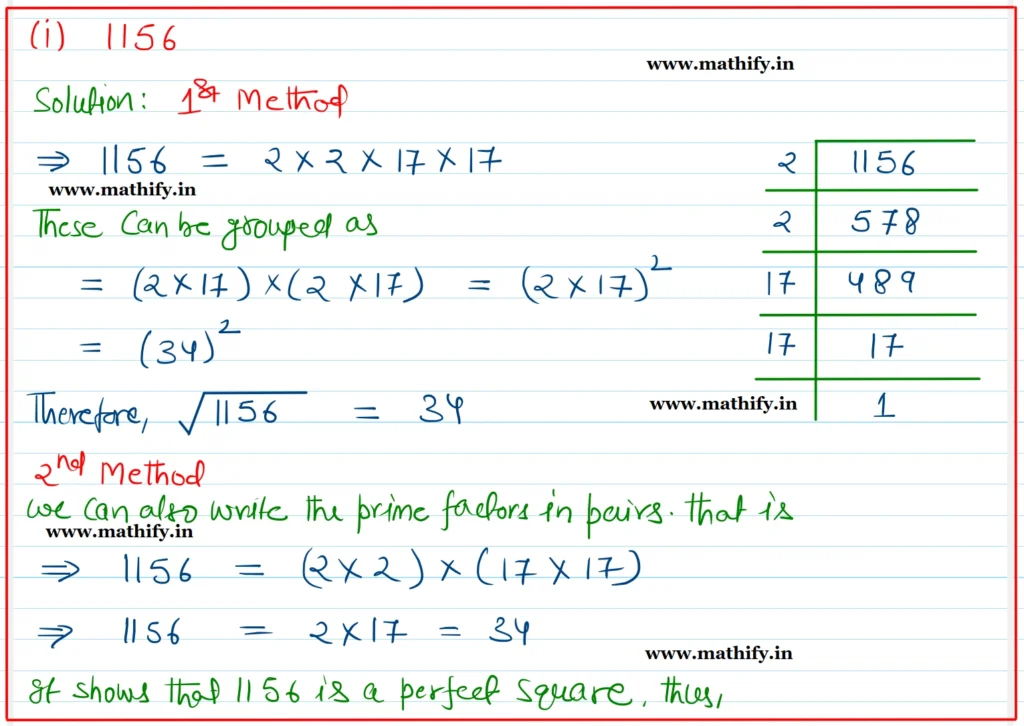 (i) 1156
www.mathify.in
Solution: 1st Method
⇒ 1156 = 2 × 2 × 17 × 17
www.mathify.in
These Can be grouped as
= (2 × 17) × (2 × 17) = (2 × 17)²
= (34)²
Therefore, √1156 = 34
2 | 1156
2 | 578
17 | 489
17 | 17
1
www.mathify.in
2nd Method
we can also write the prime factors in pairs. that is
www.mathify.in
⇒ 1156 = (2 × 2) × (17 × 17)
⇒ 1156 = 2 × 17 = 34
www.mathify.in
It shows that 1156 is a perfect square, thus,